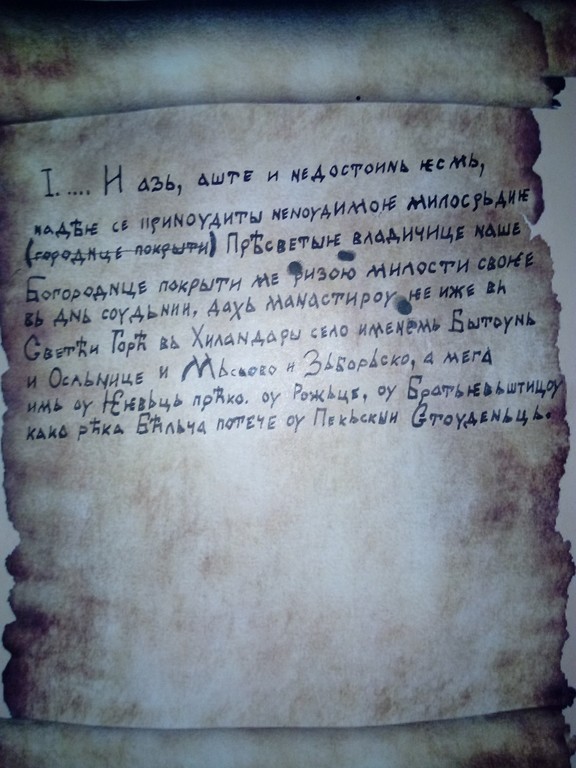 I. .... И азь, аште и недостоинь ѥсмь,
надѣю се приноудиты неноудимою милосрьдию
(городице покрыти) Прѣсветыѥ владичице наше
Богородице покрыти ме ризою милости своѥе
вь днь соудьнии, дахь манастироу ѥе иже вь
Светѣи Горѣ вь Хиландары село именемь Бытоунь
и Осльнице и Мьсново и Заборьско, а мега
имь оу Ѥневьць прѣко. оу Рожьце, оу Братьѥвьштицоу
како рѣка Бѣльча потече оу Пекьскыи Стоуденьць.